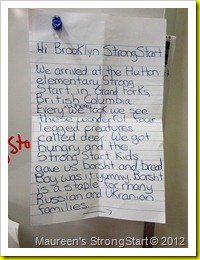 Hi Brooklyn StrongStart
We arrived at the Hutton
elementary Strong
Start, in Grand Forks,
British Columbia
Every where we look we see
These wonderful four
legged creatures
called deer. We got
hungry and the
Strong Start Kids
gave us borsht and bread
Boy was it yummy. Borsht
is a stable for many
Russian and Ukranian
families.
Maureen's StrongStart © 2012